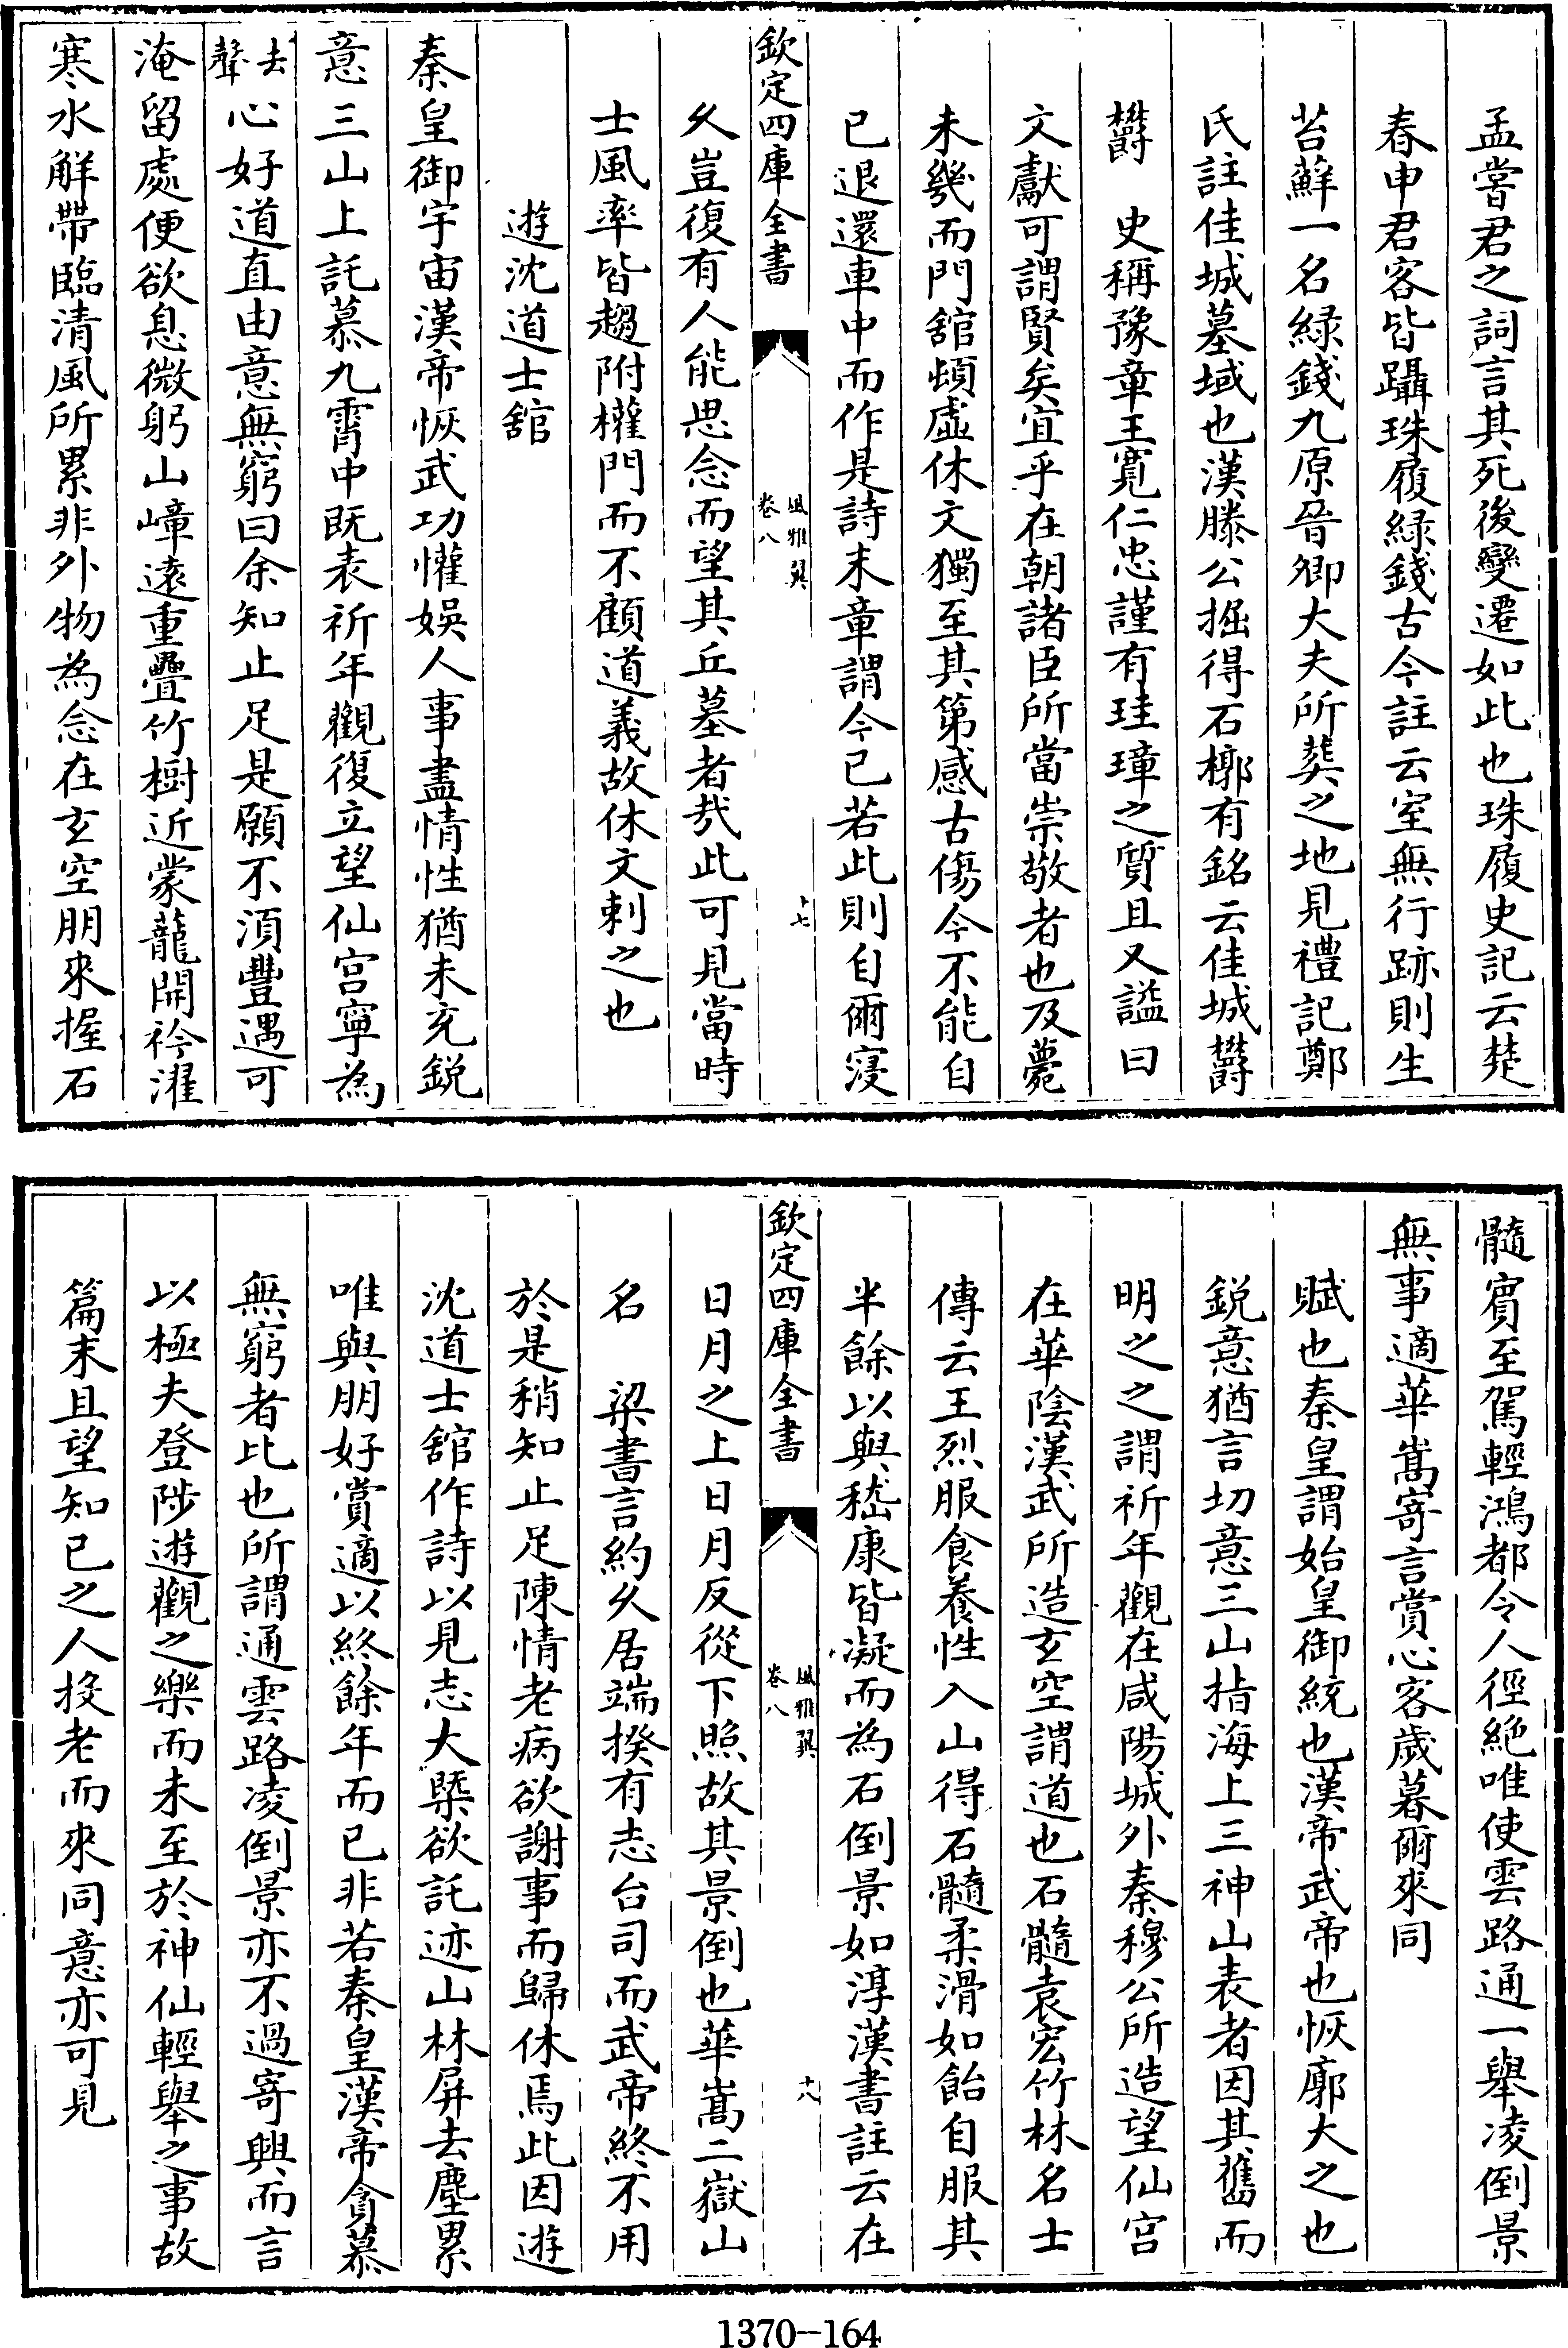 孟嘗君之詞言其死後變遷如此也珠履史記云楚
春申君客皆躡珠履綠錢古今註云室無行跡則生
苔蘚一名綠錢九原晉卿大夫所葬之地見禮記鄭
氏註佳城墓域也漢滕公掘得石槨有銘云佳城欝
欝　史稱豫章王寬仁忠謹有珪璋之質且又謚曰
文獻可謂賢矣宜乎在朝諸臣所當崇敬者也及薨
未幾而門舘頓虛休文獨至其第感古傷今不能自
已退還車中而作是詩末章謂今已若此則自爾寖
欽定四庫全書
風雅翼
卷八
十七
久豈復有人能思念而望其丘墓者哉此可見當時
士風率皆趨附權門而不顧道義故休文刺之也
遊沈道士舘
秦皇御宇宙漢帝恢武功懽娛人事盡情性猶未充鋭
意三山上託慕九霄中既表祈年觀復立望仙宮寧為
去聲心好道直由意無窮曰余知止足是願不須豐遇可
淹留處便欲息微躬山嶂遠重疊竹樹近蒙蘢開衿濯
寒水解帶臨清風所累非外物為念在玄空朋來握石
髓賓至駕輕鴻都令人徑絶唯使雲路通一舉凌倒景
無事適華嵩寄言賞心客歲暮爾來同
賦也秦皇謂始皇御統也漢帝武帝也恢廓大之也
鋭意猶言切意三山指海上三神山表者因其舊而
明之之謂祈年觀在咸陽城外秦穆公所造望仙宮
在華陰漢武所造玄空謂道也石髓袁宏竹林名士
傳云王烈服食養性入山得石髓柔滑如飴自服其
半餘以與嵇康皆凝而為石倒景如淳漢書註云在
欽定四庫全書
風雅翼
卷八
十八
日月之上日月反從下照故其景倒也華嵩二嶽山
名　梁書言約久居端揆有志台司而武帝終不用
於是稍知止足陳情老病欲謝事而歸休焉此因遊
沈道士舘作詩以見志大槩欲託迹山林屏去塵累
唯與朋好賞適以終餘年而已非若秦皇漢帝貪慕
無窮者比也所謂通雲路凌倒景亦不過寄興而言
以極夫登陟遊觀之樂而未至於神仙輕舉之事故
篇末且望知已之人投老而來同意亦可見
1370-164